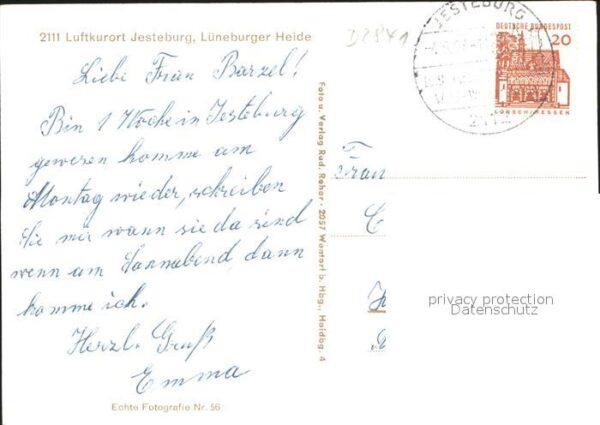 2111 Luftkurort Jesteburg, Lüneburger Heide
D2841
JESTEBURG
DEUTSCHE BUNDESPOST
20
LORSCH/HESSEN
Liebe Frau Barzel!
Bin 1 Woche in Jesteburg
gewesen komme am
Montag wieder, schreiben
Sie mir wann sie da sind
wenn am Sonnabend, dann
komme ich.
Herzl. Gruß
Emma
Echte Fotografie Nr. 56
Foto u. Verlag Rud. Reher, 2057 Wentorf b. Hbg., Haidbg. 4
Frau
privacy protection
Datenschutz